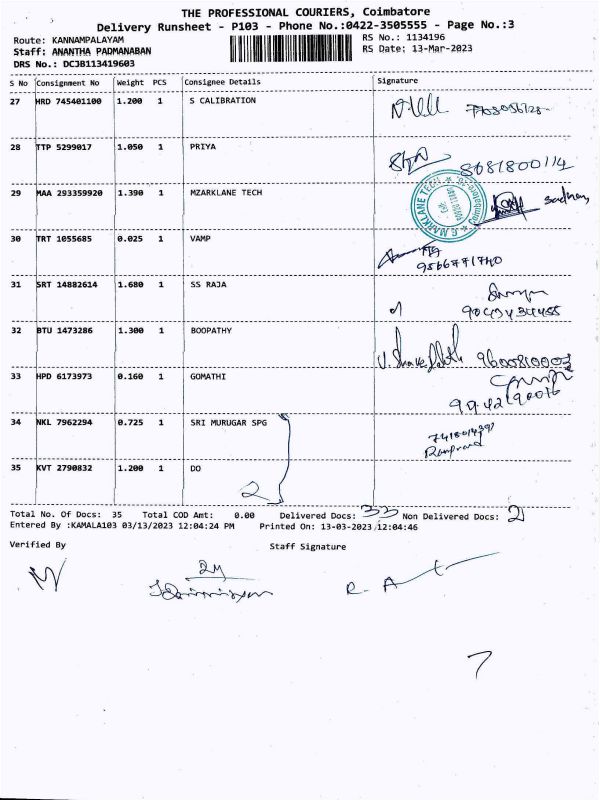 THE PROFESSIONAL COURIERS, Coimbatore
Delivery Runsheet - P103 - Phone No.:0422-3505555 - Page No.:3
Route: KANNAMPALAYAM
RS No.: 1134196
Staff: ANANTHA PADMANABAN
RS Date: 13-Mar-2023
DRS No.: DCJB113419603
S No Consignment No Weight PCS Consignee Details Signature
27 HRD 745401100 1.200 1 S CALIBRATION
28 TTP 5299017 1.050 1 PRIYA
8681800114
29 MAA 293359920 1.390 1 MZARKLANE TECH
30 TRT 1055685 0.025 1 VAMP
9566771740
31 SRT 14882614 1.680 1 SS RAJA
32 BTU 1473286 1.300 1 BOOPATHY
9600810003
33 HPD 6173973 0.160 1 GOMATHI
34 NKL 7962294 0.725 1 SRI MURUGAR SPG
35 KVT 2790832 1.200 1 DO
2
Total No. Of Docs: 35 Total COD Amt: 0.00 Delivered Docs: 33 Non Delivered Docs: 2
Entered By :KAMALA103 03/13/2023 12:04:24 PM Printed On: 13-03-2023 12:04:46
Verified By Staff Signature